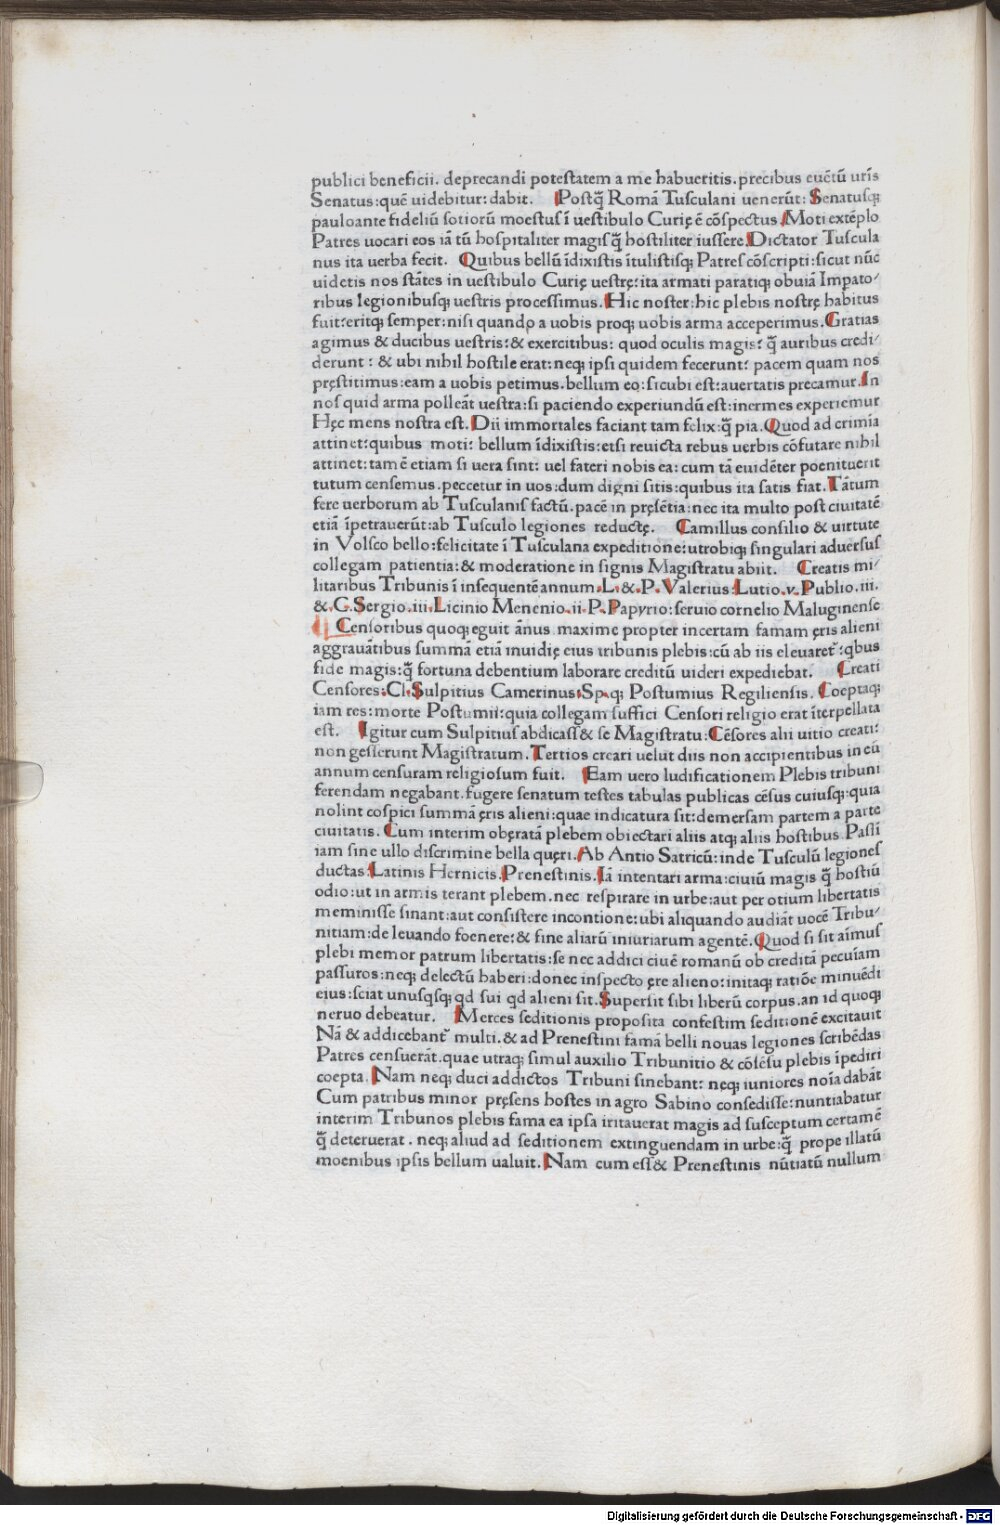 publici beneficii. deprecandi potestatem a me habueritis. precibus euẽtũ ur̃is
Senatus:quẽ uidebitur: dabit. Postq̃ Romã Tusculani uenerũt: Senatusqꝫ
pauloante fideliũ sotiorũ moestus ĩ uestibulo Curię ẽ cõspectus. Moti extẽplo
Patres uocari eos iã tũ hospitaliter magis q̃ hostiliter iussere. Dictator Tuscula
nus ita uerba fecit. Quibus bellũ ĩdixistis ĩtulistisqꝫ Patres cõscripti:sicut nũc
uidetis nos stãtes in uestibulo Curię uestrę:ita armati paratiqꝫ obuiã Impato⸗
ribus legionibusqꝫ uestris processimus. Hic noster:hic plebis nostrę habitus
fuit:eritqꝫ semper:nisi quando a uobis proqꝫ uobis arma acceperimus. Gratias
agimus & ducibus uestris:& exercitibus: quod oculis magis: q̃ auribus credi⸗
derunt: & ubi nihil hostile erat:neqꝫ ipsi quidem fecerunt: pacem quam nos
pręstitimus:eam a uobis petimus. bellum eo:sicubi est:auertatis precamur. In
nos quid arma polleãt uestra:si paciendo experiundũ est:inermes experiemur
Hęc mens nostra est. Dii immortales faciant tam felix:q̃ pia. Quod ad crimĩa
attinet:quibus moti: bellum ĩdixistis:etsi reuicta rebus uerbis cõfutare nihil
attinet:tamẽ etiam si uera sint: uel fateri nobis ea:cum tã euidẽter poenituerit
tutum censemus. peccetur in uos:dum digni sitis:quibus ita satis fiat. Tãtum
fere uerborum ab Tusculanis factũ. pacẽ in pręsẽtia:nec ita multo post ciuitatẽ
etiã ĩpetrauerũt:ab Tusculo legiones reductę. Camillus consilio & uirtute
in Volsco bello:felicitate ĩ Tusculana expeditione:utrobiqꝫ singulari aduersus
collegam patientia:& moderatione in signis Magistratu abiit. Creatis mi⸗
litaribus Tribunis ĩ insequentẽ annum. L. & .P. Valerius:Lutio.v.Publio.iii.
& .C. Sergio.iii. Licinio Menenio.ii. P. Papyrio:seruio cornelio Maluginense
Censoribus quoqꝫ eguit ãnus maxime propter incertam famam ęris alieni
aggrauãtibus summã etiã inuidię eius tribunis plebis:cũ ab iis eleuaret᷑:qbus
fide magis:q̃ fortuna debentium laborare creditũ uideri expediebat. Creati
Censores:Cl. Sulpitius Camerinus: Sp.qꝫ Postumius Regiliensis. Coeptaqꝫ
iam res:morte Postumii:quia collegam suffici Censori religio erat ĩterpellata
est. Igitur cum Sulpitius abdicass& se Magistratu:Cẽsores alii uitio creati:
non gesserunt Magistratum. Tertios creari uelut diis non accipientibus in eũ
annum censuram religiosum fuit. Eam uero ludificationem Plebis tribuni
ferendam negabant. fugere senatum testes tabulas publicas cẽsus cuiusqꝫ:quia
nolint cospici summã ęris alieni:quae indicatura sit:demersam partem a parte
ciuitatis. Cum interim obęratã plebem obiectari aliis atqꝫ aliis hostibus. Passi
iam sine ullo discrimine bella quęri. Ab Antio Satricũ:inde Tusculũ legiones
ductas:Latinis Hernicis. Prenestinis. Iã intentari arma:ciuiũ magis q̃ hostiũ
odio:ut in armis terant plebem. nec respirare in urbe:aut per otium libertatis
meminisse sinant:aut consistere incontione:ubi aliquando audiãt uocẽ Tribu⸗
nitiam:de leuando foenere:& fine aliarũ iniuriarum agentẽ. Quod si sit aĩmus
plebi memor patrum libertatis:se nec addici ciuẽ romanũ ob creditã pecuĩam
passuros:neqꝫ delectũ haberi:donec inspecto ęre alieno:initaqꝫ ratiõe minuẽdi
eius:sciat unusqsqꝫ qd sui qd alieni sit. Supersit sibi liberũ corpus. an id quoqꝫ
neruo debeatur. Merces seditionis proposita confestim seditionẽ excitauit
Nã & addicebant᷑ multi. & ad Prenestini famã belli nouas legiones scribẽdas
Patres censuerãt. quae utraqꝫ simul auxilio Tribunitio & cõsẽsu plebis ĩpediri
coepta. Nam neqꝫ duci addictos Tribuni sinebant: neqꝫ iuniores noĩa dabãt
Cum patribus minor pręsens hostes in agro Sabino consedisse:nuntiabatur
interim Tribunos plebis fama ea ipsa iritauerat magis ad susceptum certamẽ
q̃ deteruerat. neqꝫ aliud ad seditionem extinguendam in urbe:q̃ prope illatũ
moenibus ipsis bellum ualuit. Nam cum ess& Prenestinis nũtiatũ nullum
Digitalisierung gefördert durch die Deutsche Forschungsgemeinschaft - DFG